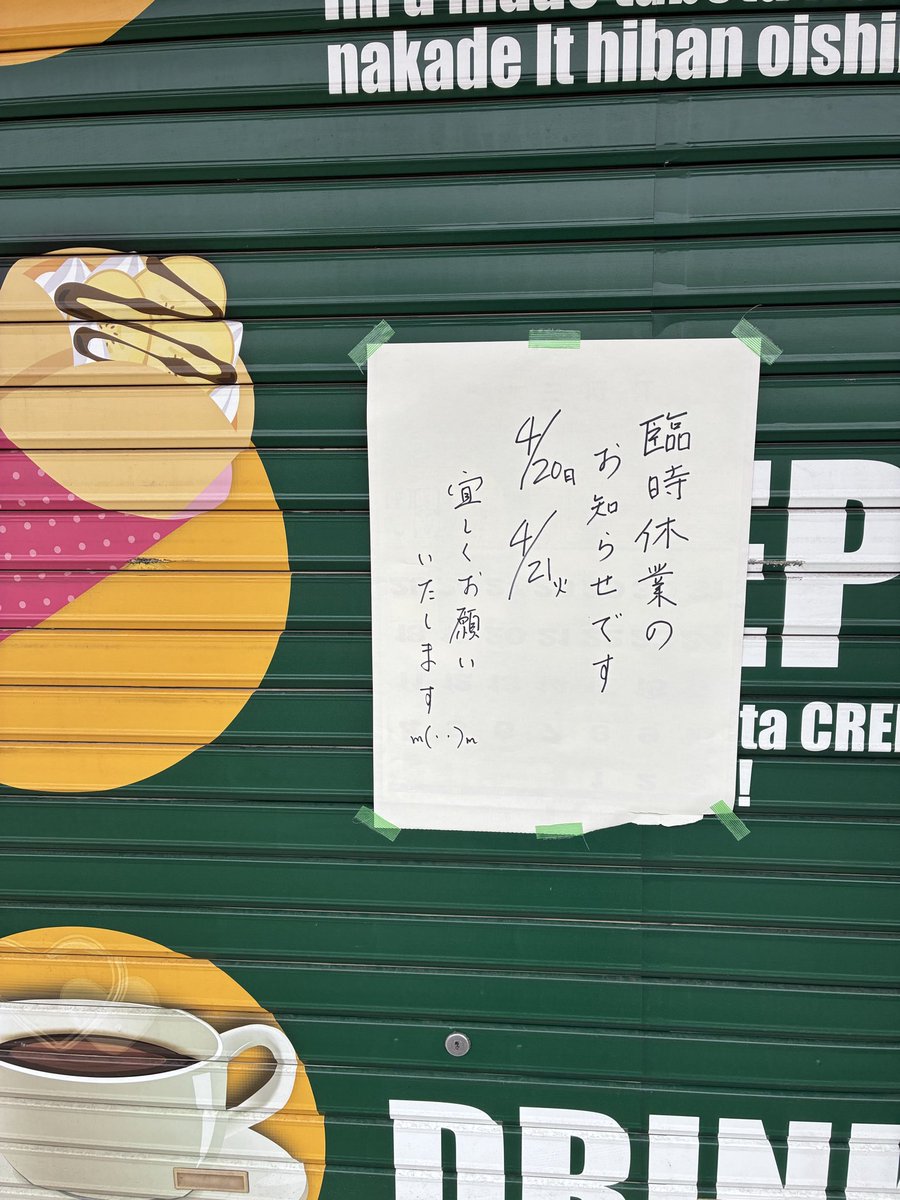 nakade It hiban oishi
臨時休業の
お知らせです
4/20日 4/21火
宜しくお願い
いたします
m(..)m
EP
ta CRE
!
DRIN